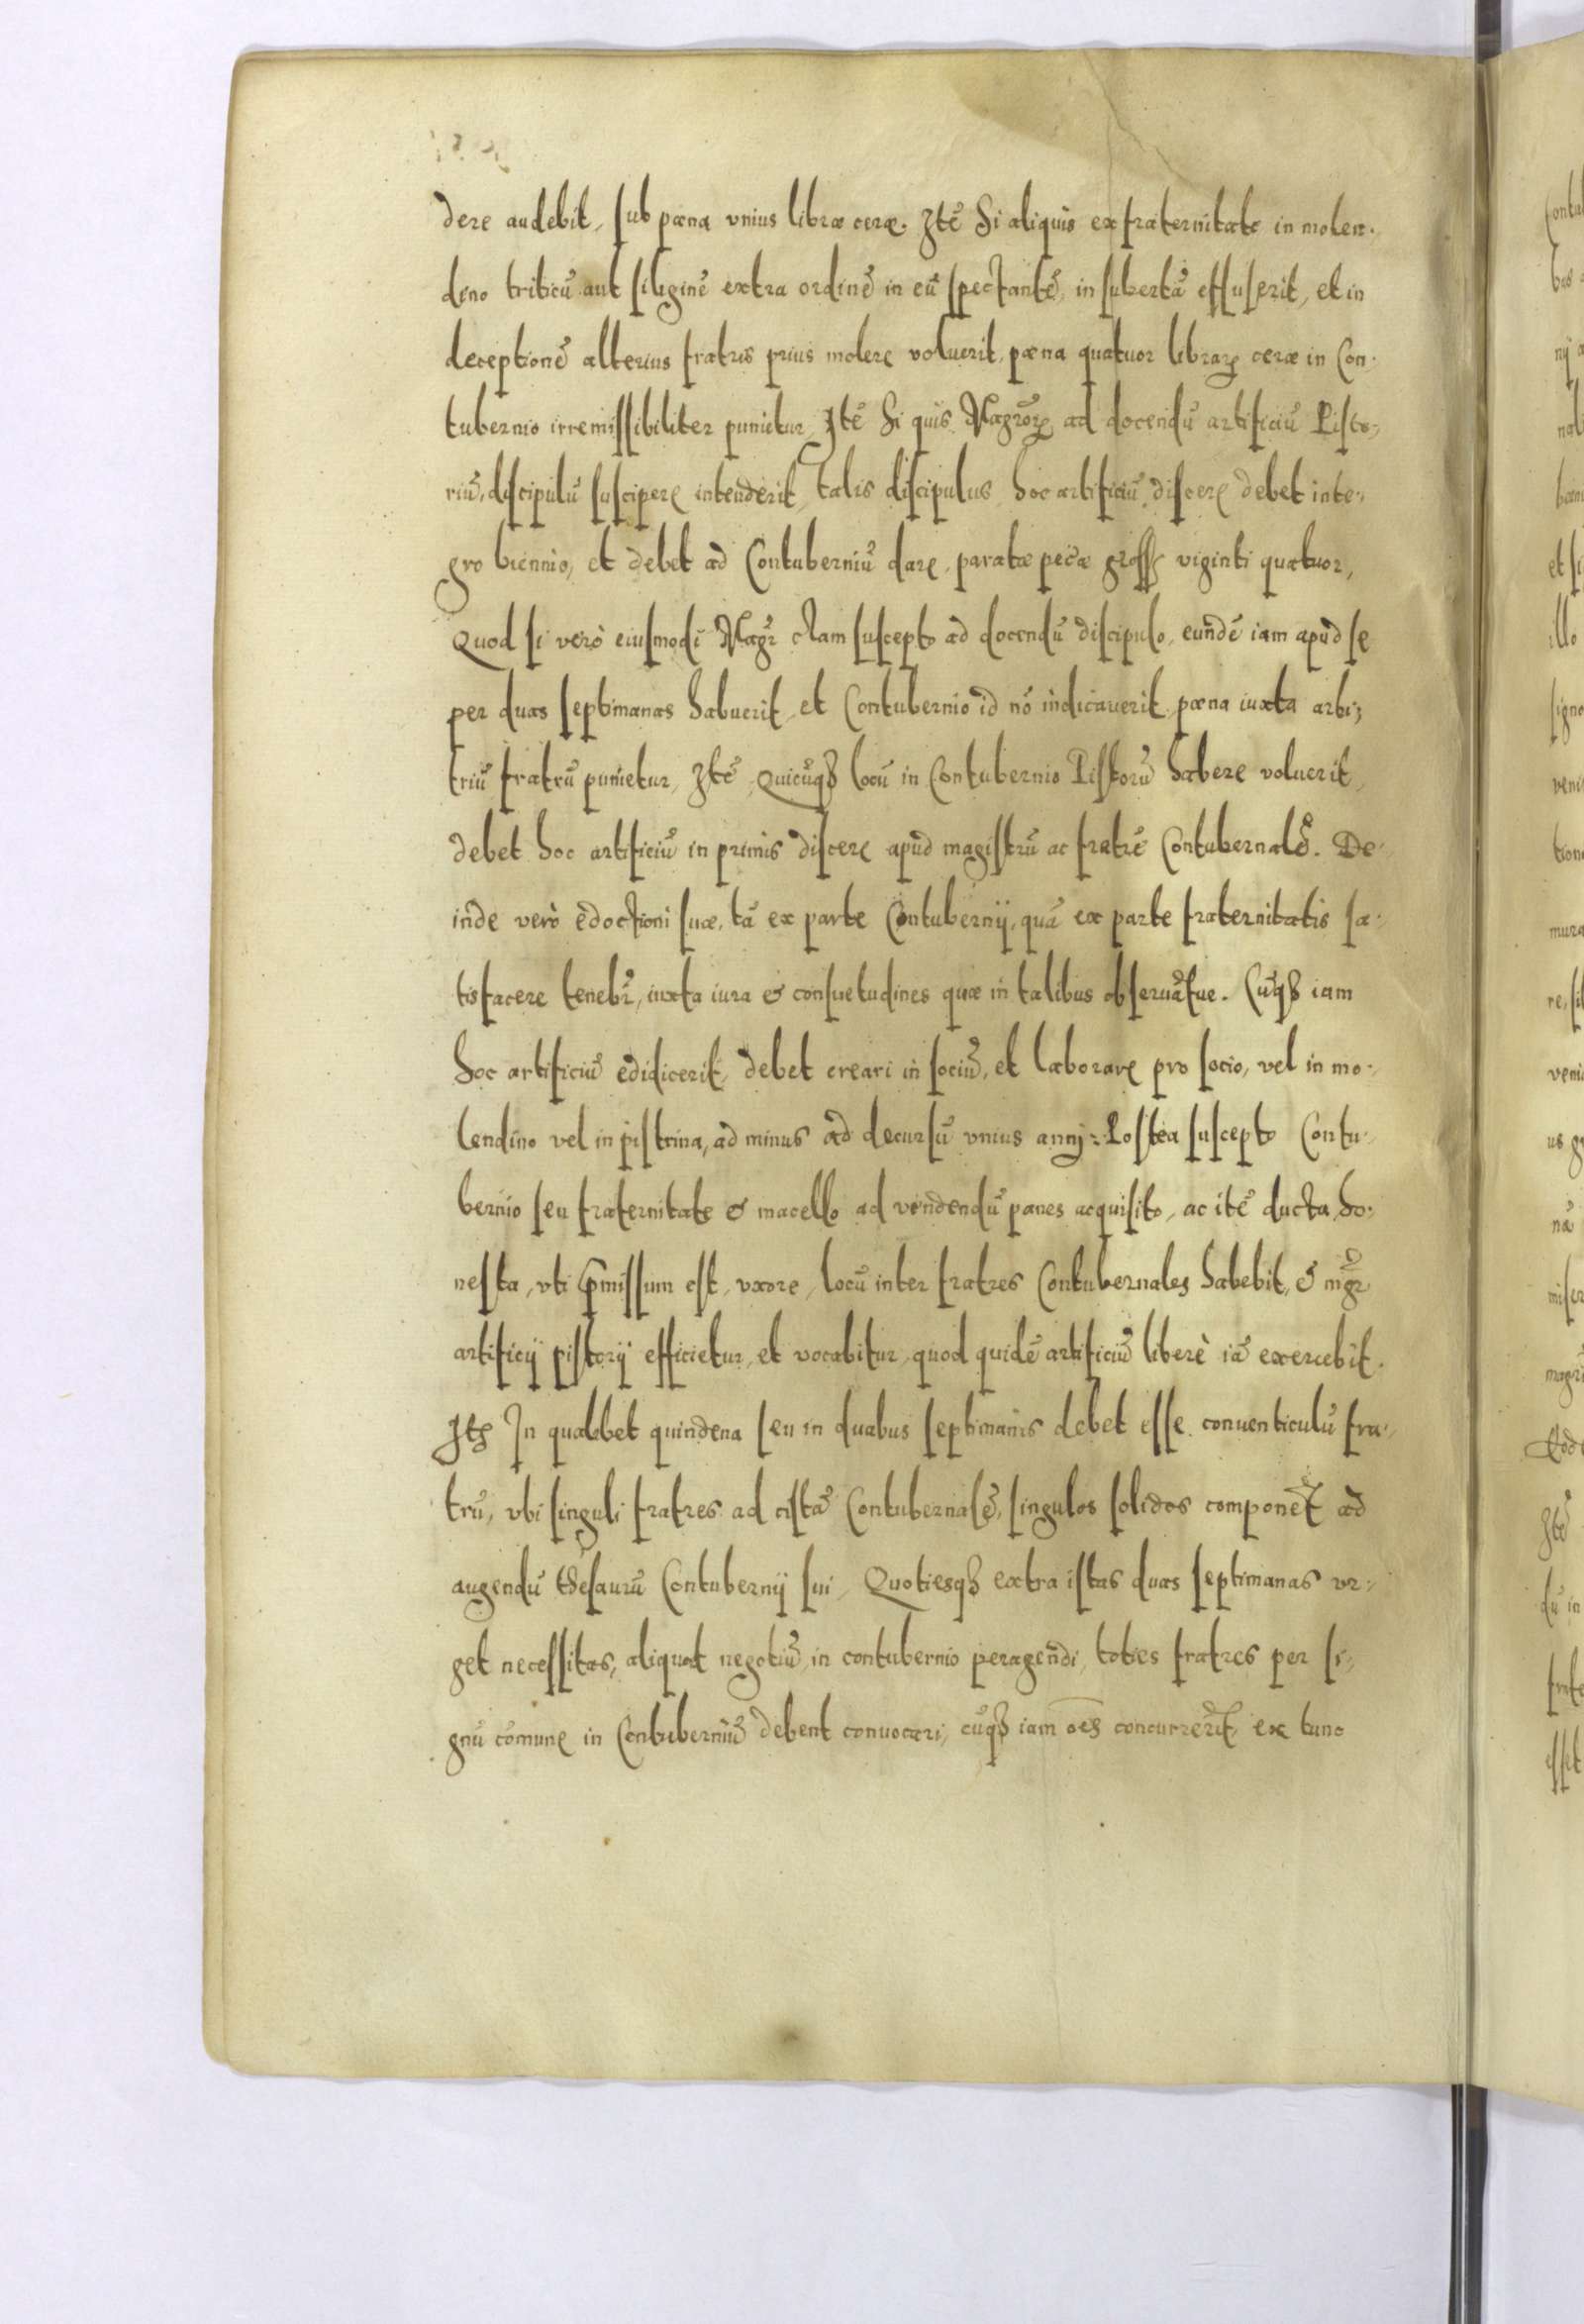 dere audebit, sub pœna vnius libræ ceræ. Itē Si aliquis ex fraternitate in molen-
dino triticū aut siliginē extra ordinē in eū spectantē, in suhertā effuserit, et in
deceptionē alterius fratris prius molere voluerit, pœna quatuor librarꝝ ceræ in Con-
tubernio irremissibiliter punietur, Itē Si quis Magrōrꝝ ad docendū artificiū Pisto-
riū, discipulū suscipere intenderit, talis discipulus hoc artificiū discere debet inte-
gro biennio, et debet ad Contuberniū dare, paratæ pecæ gross viginti quatuor,
Quod si verò eiusmodi Magr̄ clam suscepto ad docendū discipulo, eundē iam apud se
per duas septimanas habuerit, et Contubernio id nō indicauerit, pœna iuxta arbi-
triū fratrū punietur, Itē, Quicūqꝫ locū in Contubernio Pistorū habere voluerit,
debet hoc artificiū in primis discere apud magistrū ac fratrē Contubernalē. De-
inde verò edoctioni suæ, tā ex parte Contubernij, quā ex parte fraternitatis sa-
tisfacere tenebr̄, iuxta iura & consuetudines quæ in talibus obseruātue. Cūqꝫ iam
hoc artificiū edidicerit, debet creari in sociū, et laborare pro socio, vel in mo-
lendino vel in pistrina, ad minus ad decursū vnius annj: Postea suscepto Contu-
bernio seu fraternitate & macello ad vendendū panes acquisito, ac itē ducta ho-
nesta, vti p̄missum est, vxore, locū inter fratres Contubernales habebit, & mgr̄
artificij pistorij efficietur, et vocabitur, quod quidē artificiū liberè iā exercebit.
Itꝫ In qualibet quindena seu in duabus septimanis debet esse conuenticulū fra-
trū, vbi singuli fratres ad cistā Contubernalē, singulos solidos componēt ad
augendū thesaurū Contubernij sui, Quotiesqꝫ extra istas duas septimanas vr-
get necessitas, aliquot negotiū in contubernio peragendi, toties fratres per si-
gnū cōmune in Contuberniū debent conuocari, cūqꝫ iam oēs concurrerīt, ex tunc